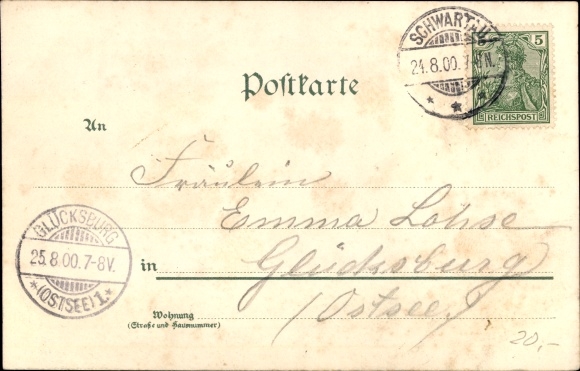 SCHWARTAU
24.8.00.7-8N.
5
REICHSPOST
Postkarte
An
Fräulein
Emma Lohse
in Glücksburg
(Ostsee)
GLÜCKSBURG
25.8.00.7-8V.
*(OSTSEE)1.*
Wohnung
(Straße und Hausnummer)
20,-